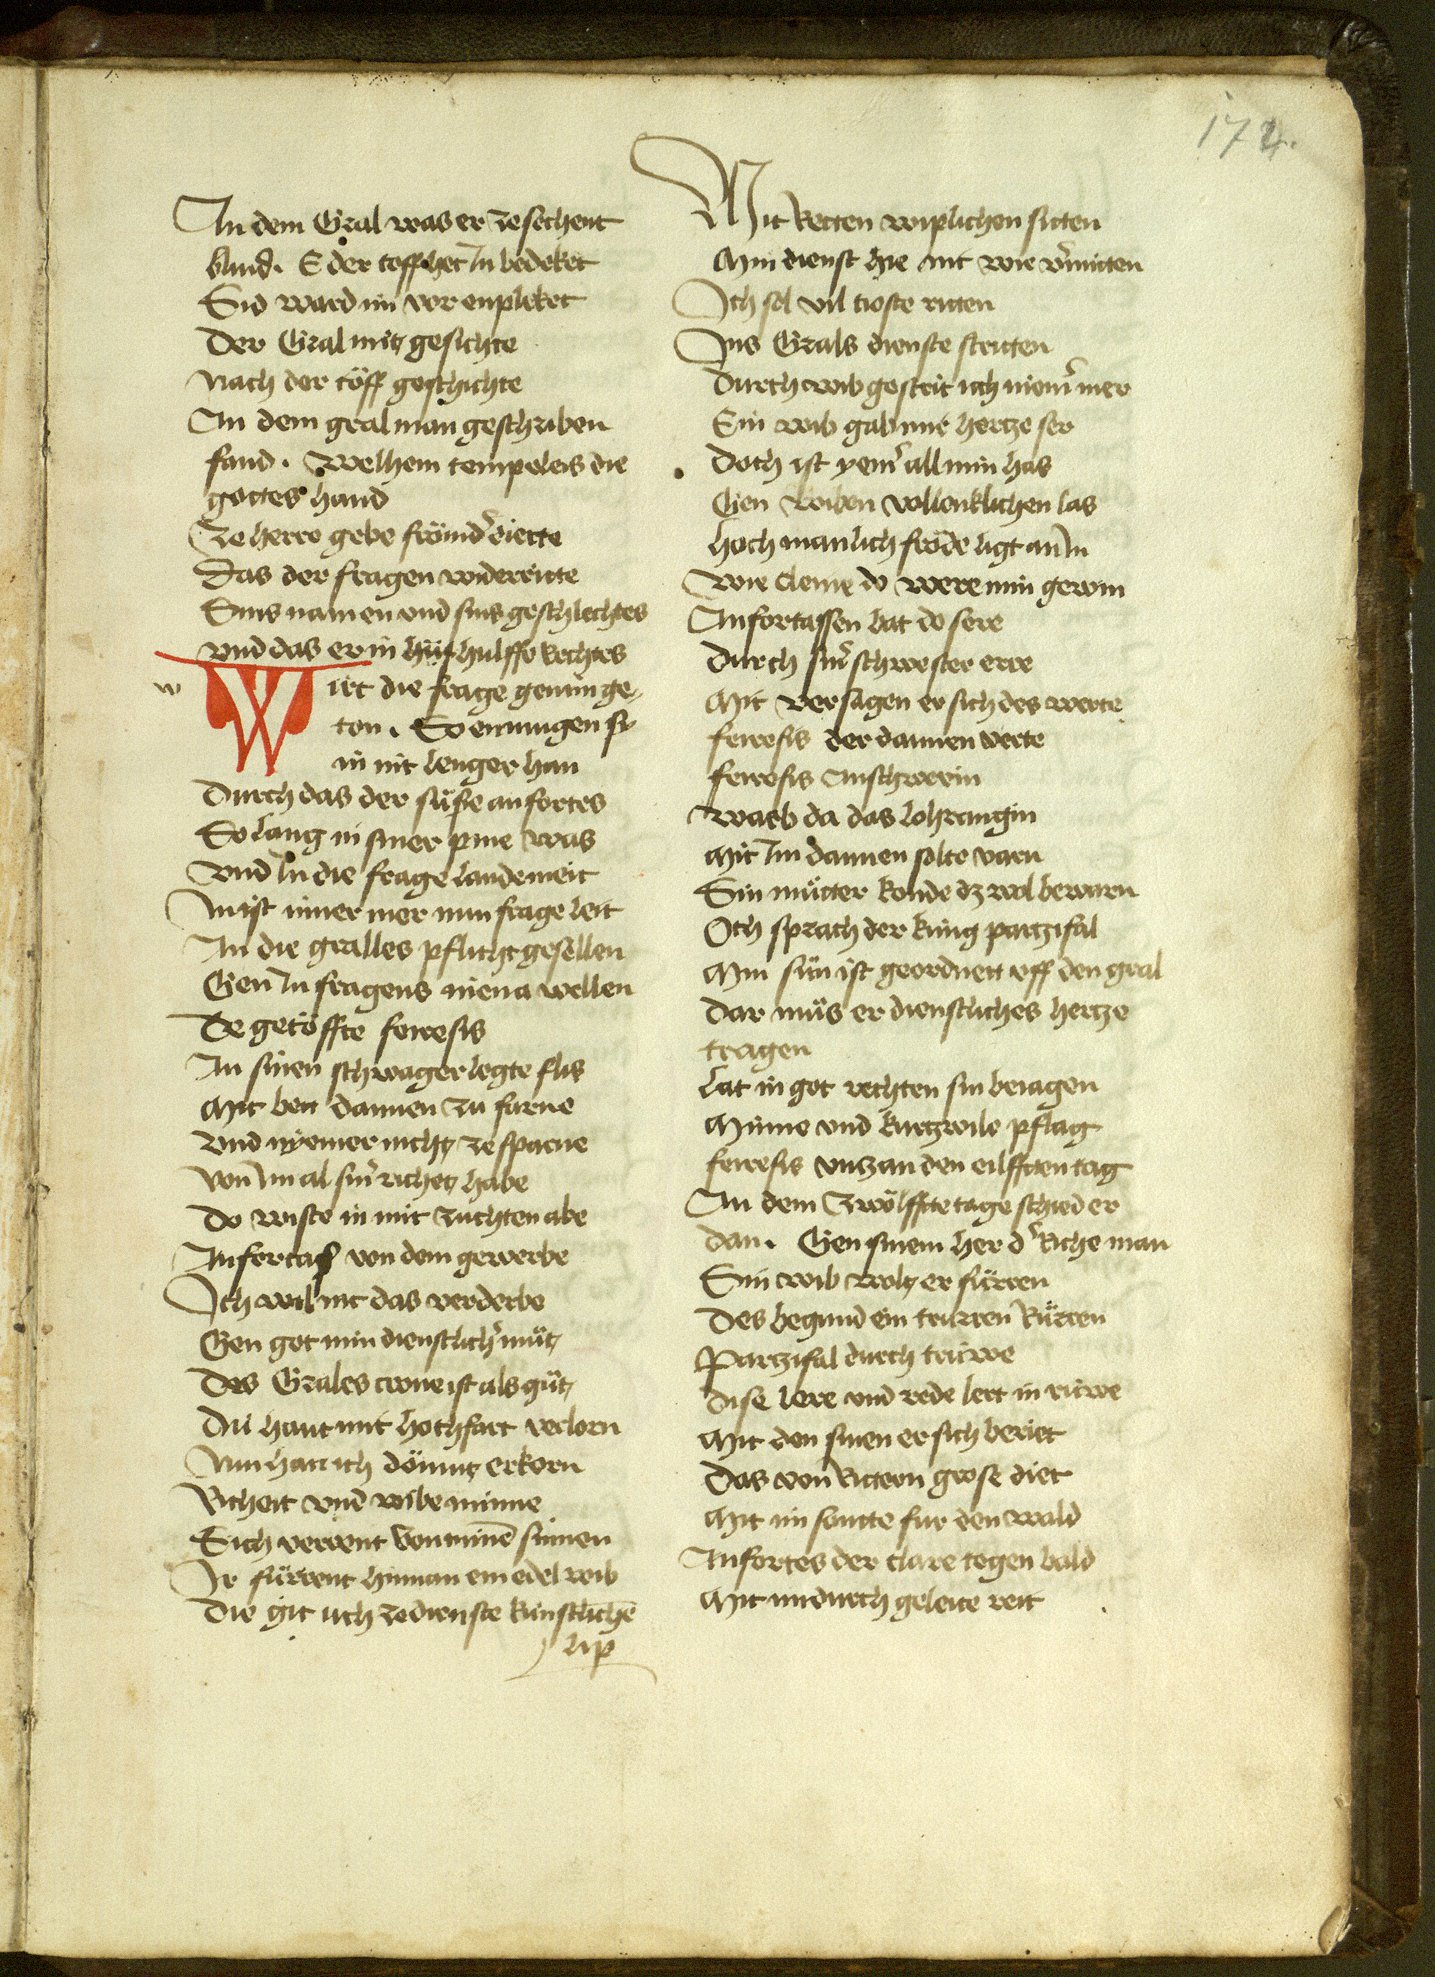 174.
An dem Gral was er ze sechent
blind. E der toff het In bedeket
Sid ward im vor enpleket
Der Gral mitz gesichte
Nach der töff geschichte
An dem gral man geschriben
fand. Welhem tempeleis die
gottes hand
Ze herre gebe frömder diette
Das der fragen widerriette
Sins namen und sins geschlechtes
und das er in hulffe Rechtes
w
Wirt die frage gemin ge
ton. So enmugen sy
in nit lenger han
Durch das der süsse anfortes
So lang in siner pine was
Und In die frage lande meit
In ist iimer mer nun frage leit
An die gralles pflicht gesellen
Gen In fragens niena wellen
De getöffte ferefis
An sinen schwager legte flis
Mit bett dannen zu farne
Und nyemer nichtz ze sparne
Von Im al siner richetz habe
Do wiste in mit zuchten abe
Anfortas von dem gewerbe
Ich wil nit das verderbe
Gen got min dienstlicher mütz
Des Grales crone ist als gütz
Die haut mit hochfart verlorn
Nun han ich dömutz erkorn
Richeit und wibe minne
Sich verrent von minen sinnen
Ir fürrent hinnan ein edel wib
Die git uch ze dienste künstlichen
lip
Mit Retten wiplichen sitten
Min dienst hie nit wie vermitten
Ich sol vil troste ritten
Ins Grals dienste stritten
Durch wib gestrit ich niemer mer
Ein wib gab mir hertze ser
Doch ist yemer all min has
Gen wiben vollenklichen las
Hoch manlich fröde ligt an In
Wie cleine do were min gewin
Anfortassen bat do sere
Durch siner schwester erre
Mit versagen er sich des werte
ferefis der dannen verte
ferefis Anschwein
Warb da das lohrangin
Mit Im dannen solte varn
Sin mütter konde dz wol bewarn
Och sprach der kung partzifal
Min sün ist geordnett uff den gral
Dar müs er dienstliches hertze
tragen
Lat in got rechten sin betagen
Minne und kurtzwile pflag
ferefis untz an den eilfften tag
An dem zwölffte tage schied er
dan. Gen sinem her der Riche man
Sin wib woltz er fürren
Des begund ein trurren Rürren
Partzifal durch trüwe
Dise lere und rede lert in rüwe
Mit den sinen er sich beriet
Das von Rittern grose diet
Mit im sontte fur den wald
Anfortes der clare tegen bald
Mit im durch geleite reit